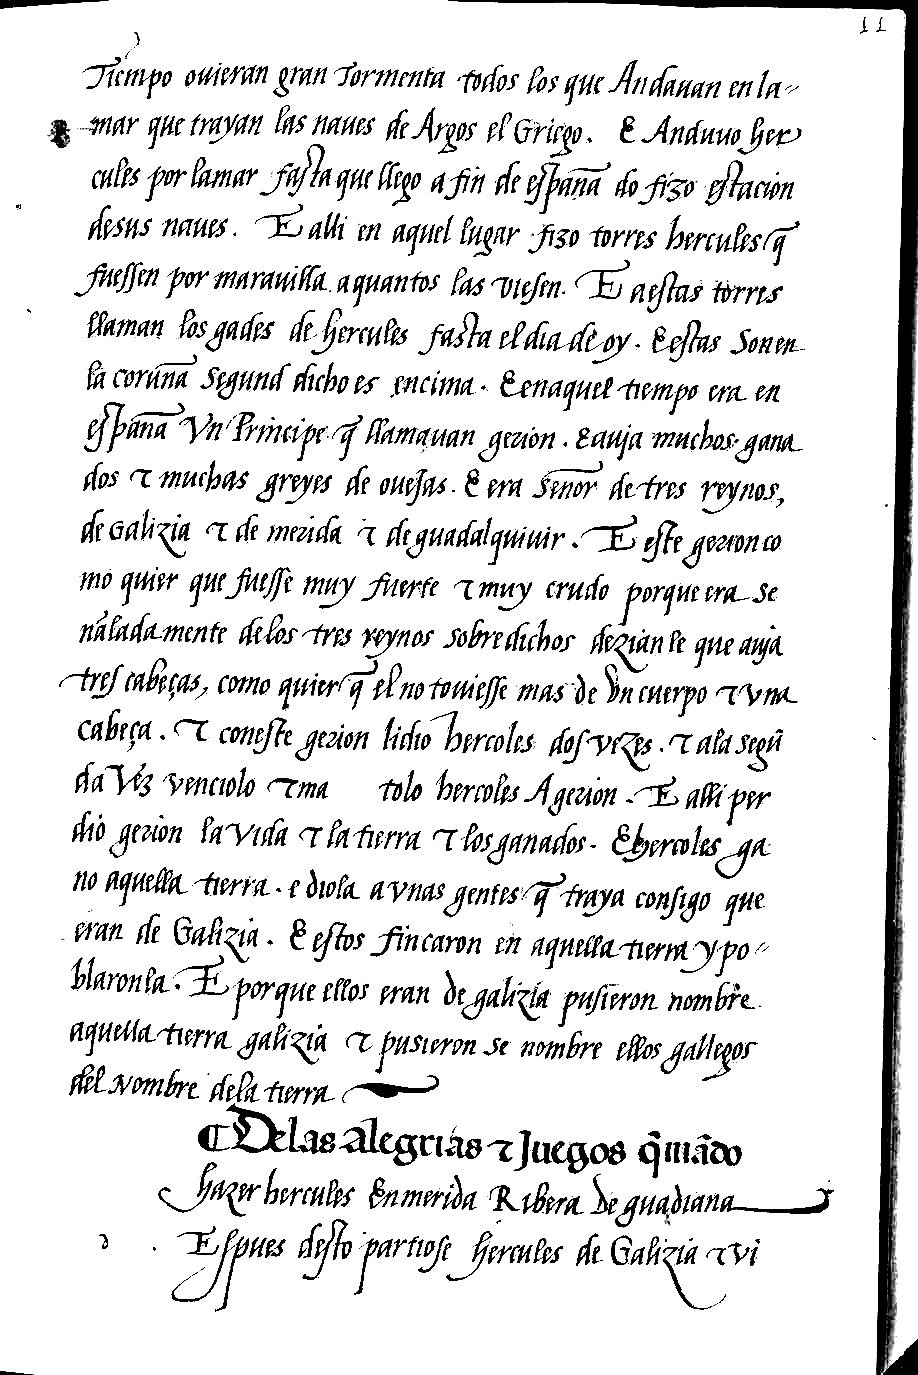 11
Tiempo ouieran gran Tormenta todos los que Andauan en la-
mar que trayan las naues de Argos el Griego. E Anduuo her
cules por lamar fasta que llego a fin de españa do fizo estacion
desus naues. E alli en aquel lugar fizo torres hercules q̃
fuessen por marauilla aquantos las viesen. E aestas torres
llaman los gades de hercules fasta el dia de oy. E estas Son en
la coruña Segund dicho es encima. E enaquel tiempo era en
españa Vn Principe q̃ llamauan gerion. E auja muchos gana
dos ⁊ muchas greyes de ouejas. E era Señor de tres reynos,
de Galizia ⁊ de merida ⁊ de guadalquiuir. E este gerion co
mo quier que fuesse muy fuerte ⁊ muy crudo porque era Se
ñaladamente delos tres reynos sobredichos dezianle que auja
tres cabeças, como quier q̃ el no touiesse mas de vn cuerpo ⁊ vna
cabeça. ⁊ coneste gerion lidio hercoles dos vezes. ⁊ ala segũ
da Vez venciolo ⁊ ma tolo hercoles A gerion. E alli per
dio gerion la vida ⁊ la tierra ⁊ los ganados. E hercoles ga
no aquella tierra. e diola a vnas gentes q̃ traya consigo que
eran de Galizia. E estos fincaron en aquella tierra y po-
blaronla. E porque ellos eran de galizia pusieron nombre
aquella tierra galizia ⁊ pusieron se nombre ellos gallegos
del Nombre dela tierra
¶ Delas alegrias ⁊ Juegos q̃ mãdo
hazer hercules En merida Ribera de guadiana
d Espues desto partiose hercules de Galizia ⁊ vi